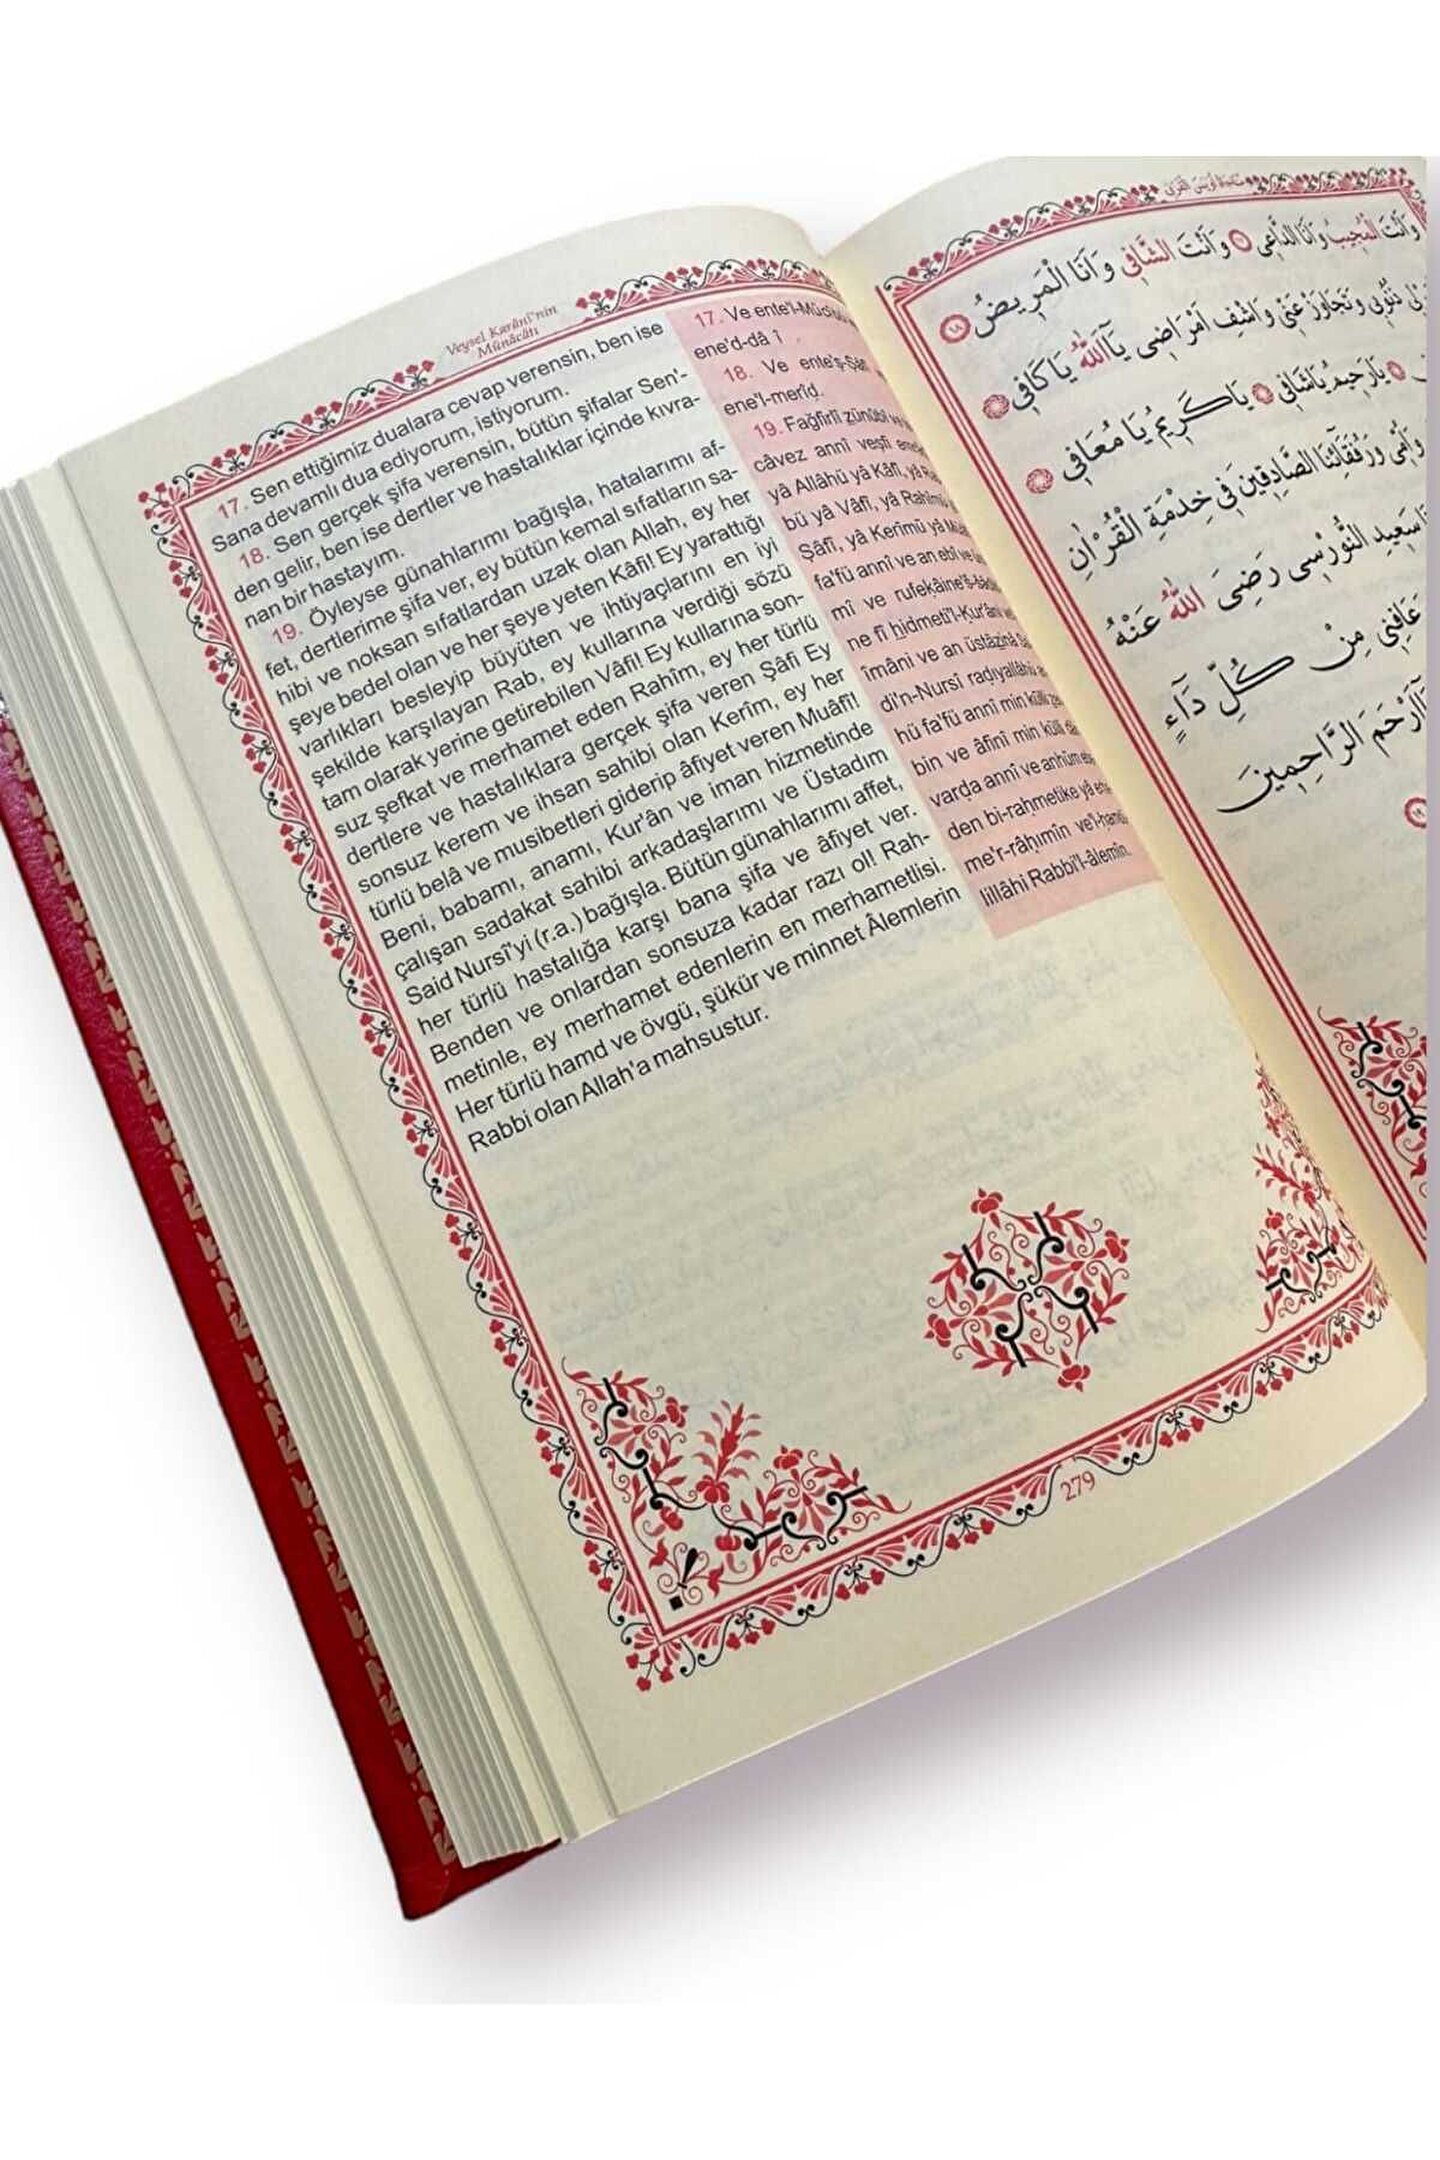 Veysel Karânî'nin
Münâcâtı
17. Sen ettiğimiz dualara cevap verensin, ben ise
Sana devamlı dua ediyorum, istiyorum.
18. Sen gerçek şifa verensin, bütün şifalar Sen'-
den gelir, ben ise dertler ve hastalıklar içinde kıvra-
nan bir hastayım.
19. Öyleyse günahlarımı bağışla, hatalarımı af-
fet, dertlerime şifa ver, ey bütün kemal sıfatların sa-
hibi ve noksan sıfatlardan uzak olan Allah, ey her
şeye bedel olan ve her şeye yeten Kâfi! Ey yarattığı
varlıkları besleyip büyüten ve ihtiyaçlarını en iyi
şekilde karşılayan Rab, ey kullarına verdiği sözü
tam olarak yerine getirebilen Vâfi! Ey kullarına son-
suz şefkat ve merhamet eden Rahîm, ey her türlü
dertlere ve hastalıklara gerçek şifa veren Şâfi Ey
sonsuz kerem ve ihsan sahibi olan Kerîm, ey her
türlü belâ ve musibetleri giderip âfiyet veren Muâfi!
Beni, babamı, anamı, Kur'ân ve iman hizmetinde
çalışan sadakat sahibi arkadaşlarımı ve Üstadım
Said Nursî'yi (r.a.) bağışla. Bütün günahlarımı affet,
her türlü hastalığa karşı bana şifa ve âfiyet ver.
Benden ve onlardan sonsuza kadar razı ol! Rah-
metinle, ey merhamet edenlerin en merhametlisi.
Her türlü hamd ve övgü, şükür ve minnet Âlemlerin
Rabbi olan Allah'a mahsustur.
17. Ve ente'l-
ene'd-dâ î
18. Ve ente'ş-Şâfî
ene'l-merîḍ.
19. Fağfirlî zünûbî
câvez annî veşfi
yâ Allâhü yâ Kâfî, yâ
bü yâ Vâfî, yâ Rahîmü
Şâfî, yâ Kerîmü yâ
fa'fü annî ve an ebî ve
mî ve rufekâine'ṣ-
ne fî ḫidmeti'l-Kur'âni
îmâni ve an üstâẕinâ
di'n-Nursî radıyallâhü
hü fa'fü annî min külli
bin ve âfinî min külli
varḍa annî ve anhüm
den bi-raḥmetike yâ
me'r-râḥimîn ve'l-ḥamdü
lillâhi Rabbi'l-âlemîn.
279
مُنَاجَاةُ اُوَيْسَ الْقَرَنِى
وَاَنْتَ الْمُجِيبُ وَاَنَا الدَّاعِى ۝ وَاَنْتَ الشَّافِى وَاَنَا الْمَرِيضُ ۝
ذُنُوبِى وَتَجَاوَزْ عَنِّى وَاشْفِ اَمْرَاضِى يَا اَللّٰهُ يَا كَافِى ۝
يَا رَحِيمُ يَا شَافِى ۝ يَا كَرِيمُ يَا مُعَافِى ۝
وَاُمِّى وَرُفَقَائِنَا الصَّادِقِينَ فِى خِدْمَةِ الْقُرْاٰنِ
سَعِيدِ النُّورْسِى رَضِىَ اللّٰهُ عَنْهُ
عَافِنِى مِنْ كُلِّ دَآءٍ
اَرْحَمَ الرَّاحِمِينَ